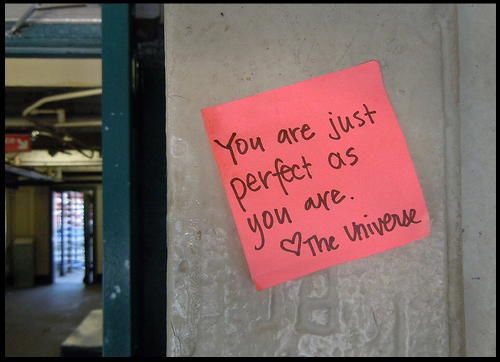 You are just
perfect as
you are.
♡The Universe